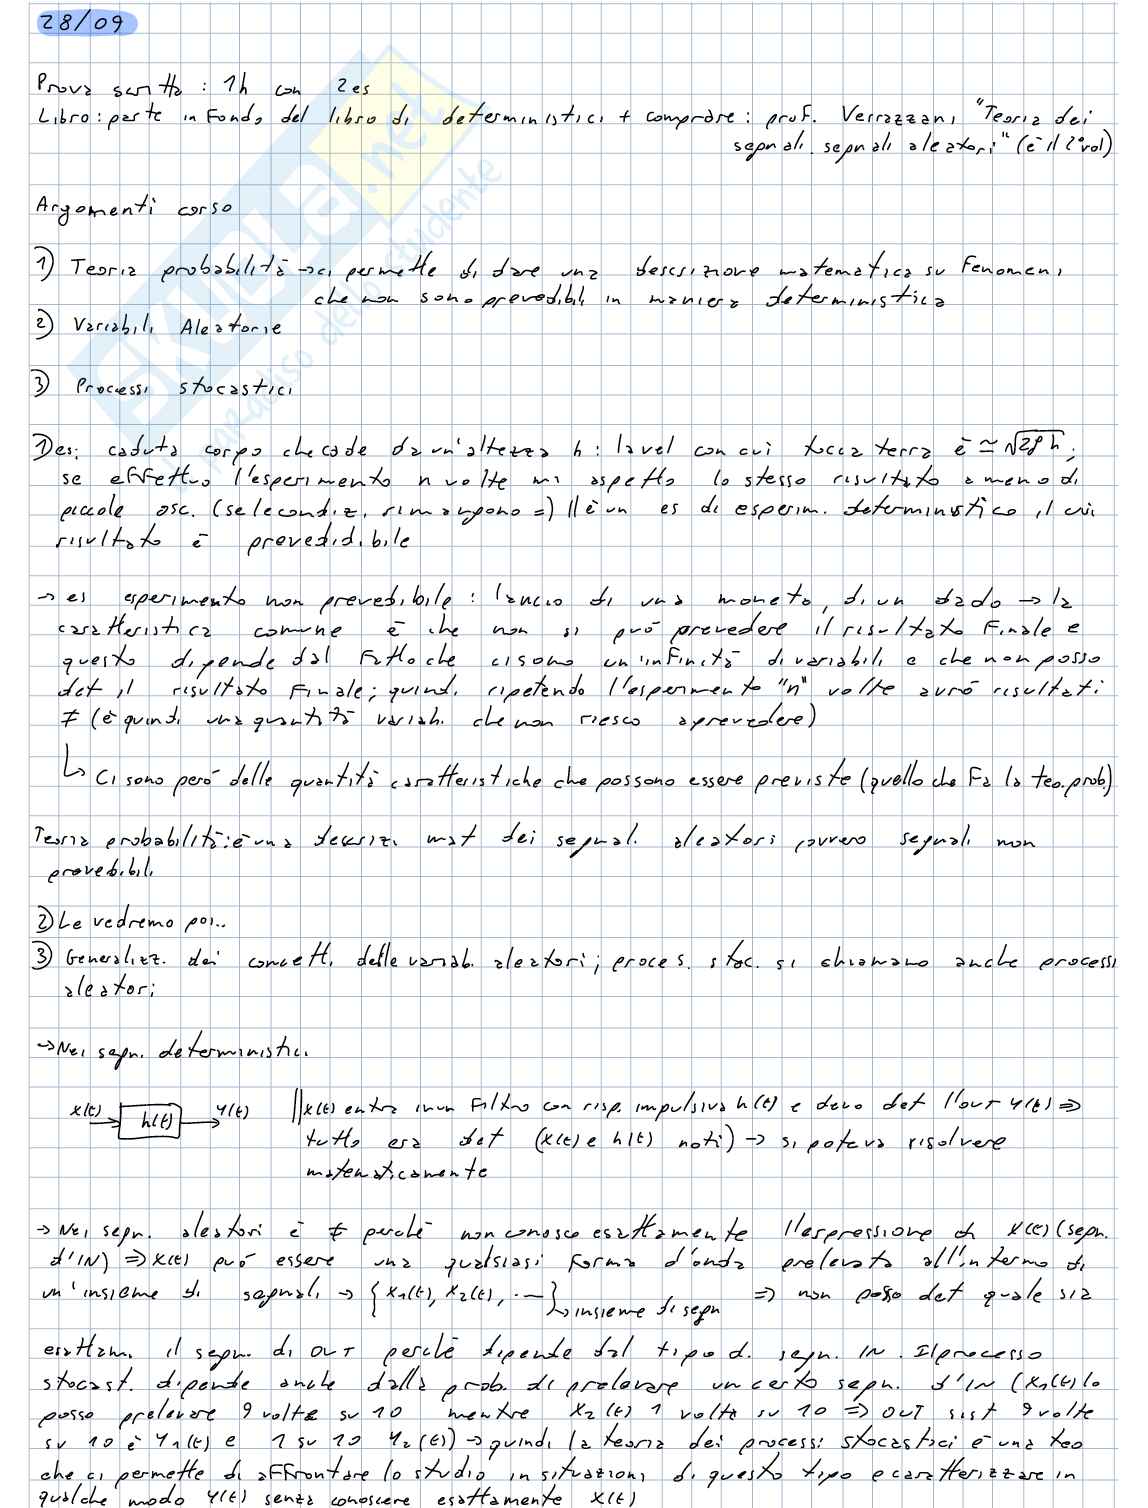 28/09
Prova scritta : 1h con 2es
Libro: parte in fondo del libro di deterministici + comprare: prof. Verrazzani "Teoria dei
segnali. segnali aleatori" (è il 2°vol)
Argomenti corso
1) Teoria probabilità → ci permette di dare una descrizione matematica su fenomeni
che non sono prevedibili in maniera deterministica
2) Variabili Aleatorie
3) Processi stocastici
1) es: caduta corpo che cade da un'altezza h: la vel con cui tocca terra è ≃ √2gh;
se effettuo l'esperimento n volte mi aspetto lo stesso risultato a meno di
piccole osc. (se le condiz. rimangono =) || è un es di esperim. deterministico il cui
risultato è prevedidibile
→ es esperimento non prevedibile : lancio di una moneta, di un dado → la
caratteristica comune è che non si può prevedere il risultato finale e
questo dipende dal fatto che ci sono un'infinità di variabili e che non posso
det il risultato finale; quindi ripetendo l'esperimento "n" volte avrò risultati
≠ (è quindi una quantità variab. che non riesco a prevedere)
↳ Ci sono però delle quantità caratteristiche che possono essere previste (quello che fa la teo. prob.)
Teoria probabilità: è una descriz. mat dei segnali aleatori ovvero segnali non
prevedibili
2) Le vedremo poi..
3) Generalizz. dei concetti delle variab. aleatori; proces. stoc. si chiamano anche processi
aleatori
→ Nei segn. deterministici
x(t) h(t) y(t) || x(t) entra in un filtro con risp. impulsiva h(t) e devo det l'out y(t) ⇒
tutto era det (x(t) e h(t) noti) → si poteva risolvere
matematicamente
→ Nei segn. aleatori è ≠ perchè non conosco esattamente l'espressione di x(t) (segn.
d'IN) ⇒ x(t) può essere una qualsiasi forma d'onda prelevata all'interno di
un'insieme di segnali → {x1(t), x2(t), ...} ↳ insieme di segn ⇒ non posso det quale sia
esattam. il segn. di OUT perchè dipende dal tipo di segn. IN. Il processo
stocast. dipende anche dalla prob. di prelevare un certo segn. d'IN (x1(t) lo
posso prelevare 9 volte su 10 mentre x2(t) 1 volta su 10 ⇒ OUT sist 9 volte
su 10 è y1(t) e 1 su 10 y2(t)) → quindi la teoria dei processi stocastici è una teo
che ci permette di affrontare lo studio in situazioni di questo tipo e caratterizzare in
qualche modo y(t) senza conoscere esattamente x(t)
SKUOLA.net
il paradiso dello studente